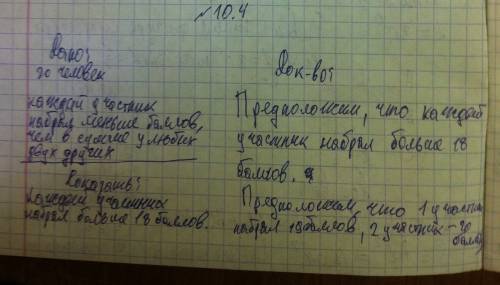 №10.4
Дано:
20 человек
каждый участник
набрал меньше баллов,
чем в сумме у любых
двух других
Доказать:
Каждый участник
набрал больше 18 баллов.
Док-во:
Предположим, что каждый
участник набрал больше 18
баллов.
Предположим, что 1 участник
набрал 19 баллов, 2 участник - 20
баллов